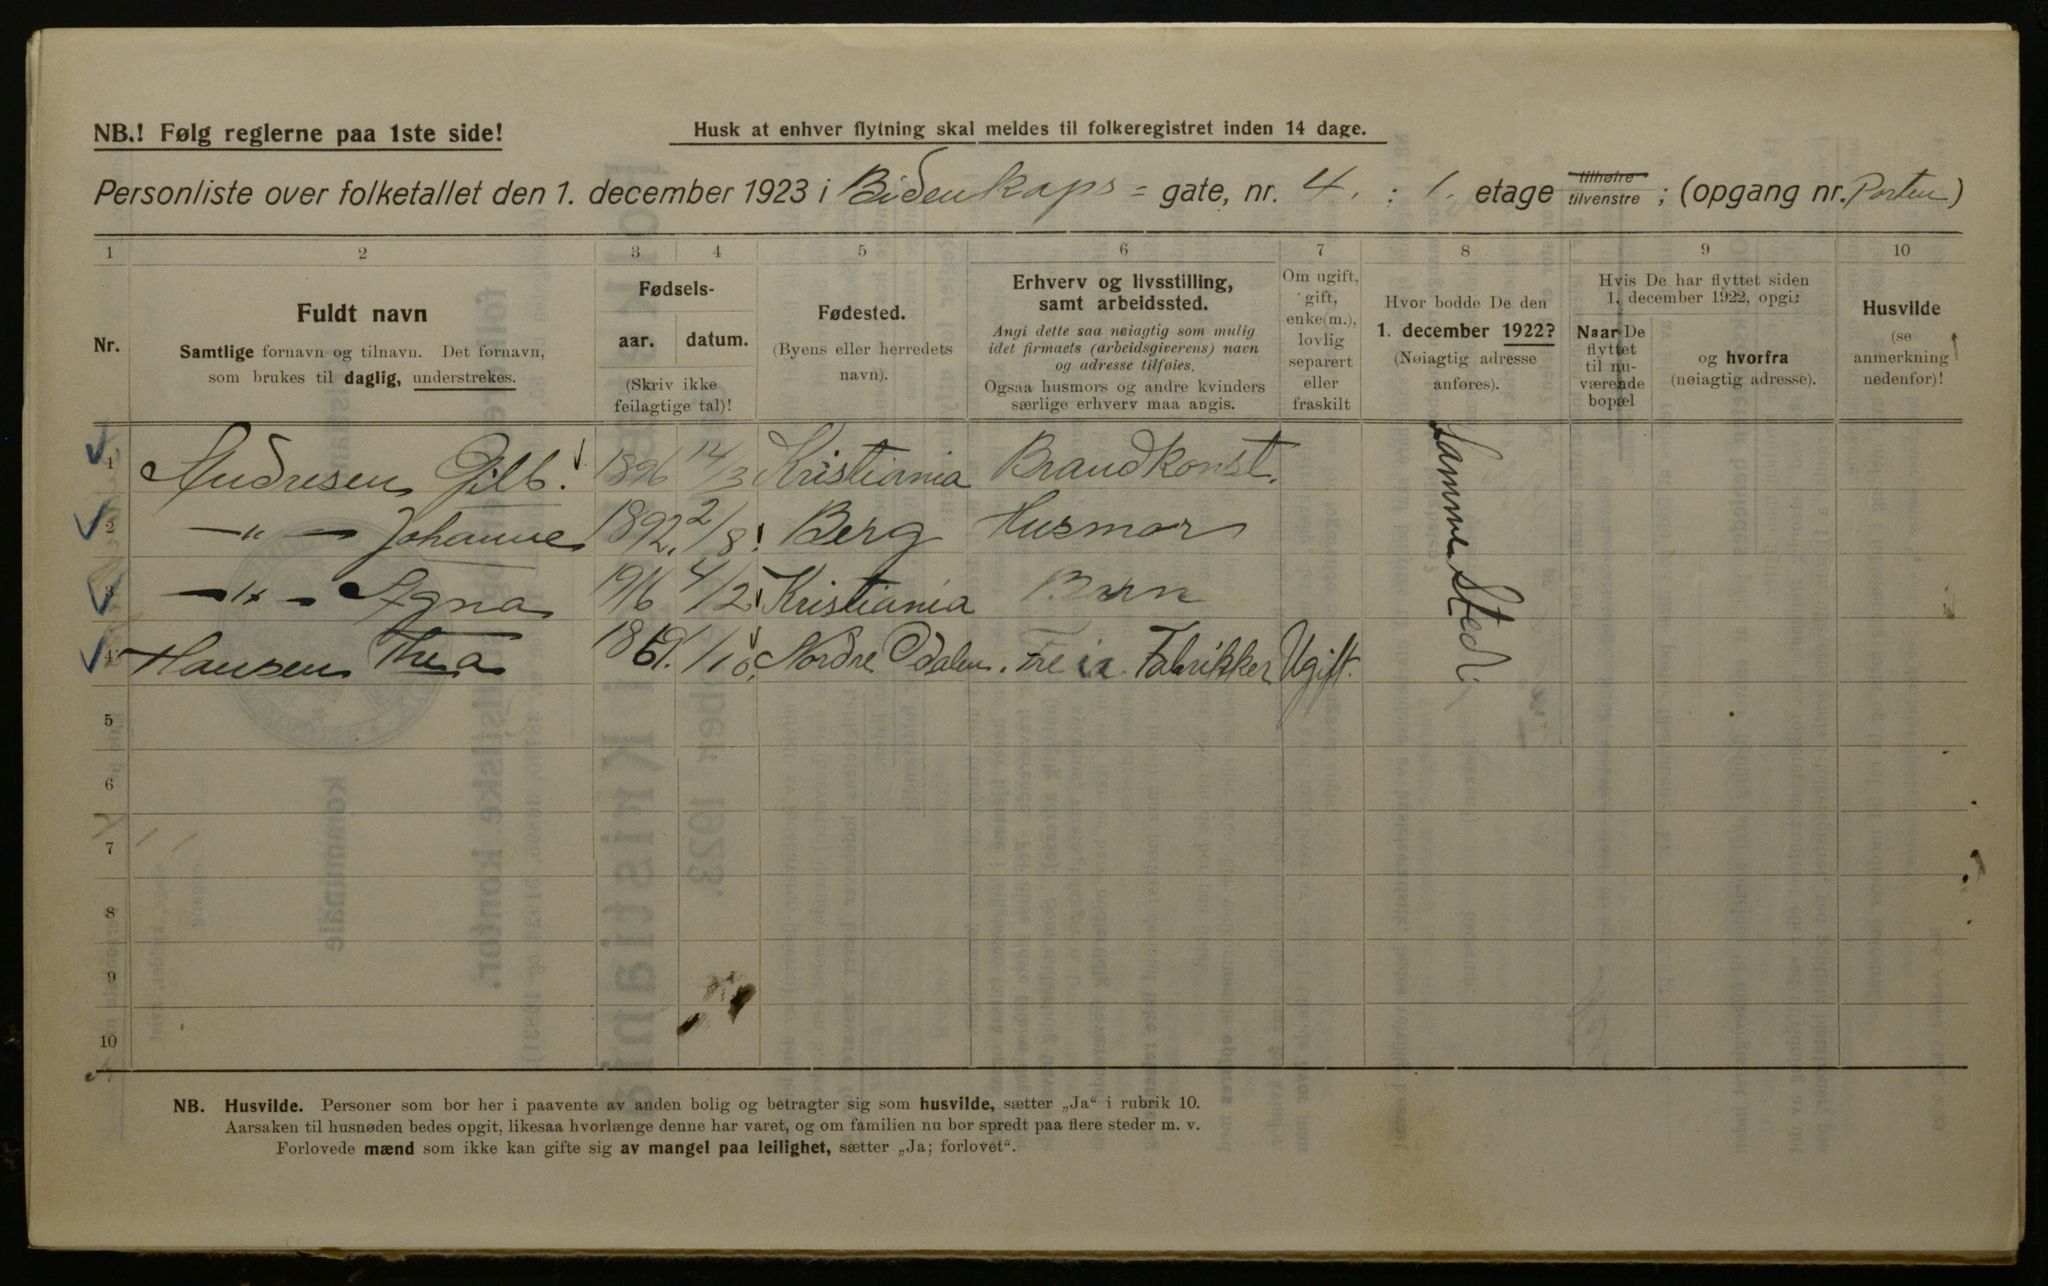 NB.! Følg reglerne paa 1ste side!
Husk at enhver flytning skal meldes til folkeregistret inden 14 dage.
Personliste over folketallet den 1. december 1923 i Bidenkaps = gate, nr. 4. : 1. etage tilhøire tilvenstre ; (opgang nr. Porten)
1 2 3 4 5 6 7 8 9 10
Nr.
Fuldt navn
Samtlige fornavn og tilnavn. Det fornavn,
som brukes til daglig, understrekes.
Fødsels-
aar. datum.
(Skriv ikke
feilagtige tal)!
Fødested.
(Byens eller herredets
navn).
Erhverv og livsstilling,
samt arbeidssted.
Angi dette saa nøiagtig som mulig
idet firmaets (arbeidsgiverens) navn
og adresse tilføies.
Ogsaa husmors og andre kvinders
særlige erhverv maa angis.
Om ugift,
gift,
enke(m.),
lovlig
separert
eller
fraskilt
Hvor bodde De den
1. december 1922?
(Nøiagtig adresse
anføres).
Hvis De har flyttet siden
1. december 1922, opgi:
Naar De
flyttet
til nu-
værende
bopæl
og hvorfra
(nøiagtig adresse).
Husvilde
(se
anmerkning
nedenfor)!
1 Andresen Gilb. 1896 14/3 Kristiania Brandkonst.
2 —"— Johanne 1892. 2/8 Berg Husmor
3 —"— Agna 1916 4/2 Kristiania Barn
4 Hansen Thea 1861. 1/10. Nordre Odalen. Freia Fabrikker Ugift.
Samme Sted.
5
6
7
8
9
10
NB. Husvilde. Personer som bor her i paavente av anden bolig og betragter sig som husvilde, sætter „Ja“ i rubrik 10.
Aarsaken til husnøden bedes opgit, likesaa hvorlænge denne har varet, og om familien nu bor spredt paa flere steder m. v.
Forlovede mænd som ikke kan gifte sig av mangel paa leilighet, sætter „Ja; forlovet“.